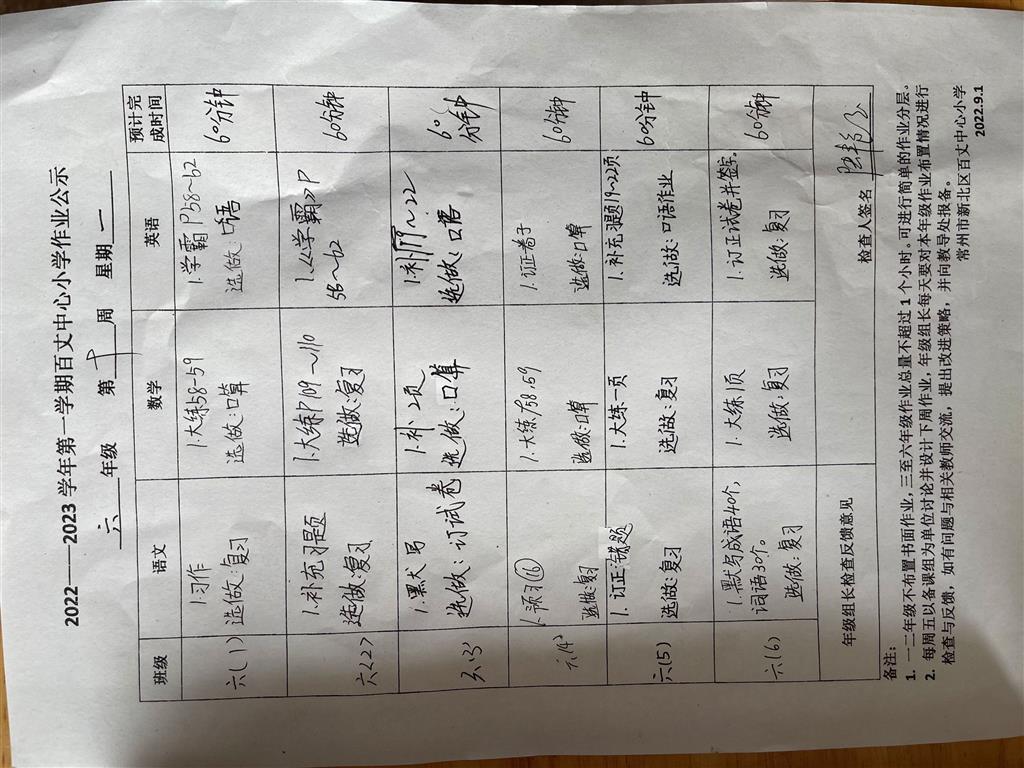 2022——2023 学年第一学期百丈中心小学作业公示
六 年级 第 十 周 星期 一
班级 语文 数学 英语 预计完成时间
六(1) 1.习作 1.大练58-59 1.学霸P58~62 60分钟
选做:复习 选做:口算 选做:口语
六(2) 1.补充习题 1.大练P109~110 1.《学霸》P 60分钟
选做:复习 选做:复习 58~62
六(3) 1.默写 1.补2页 1.补19~22 60分钟
选做:订试卷 选做:口算 选做:口语
六(4) 1.预习⑯ 1.大练P58.59 1.订正卷子 60分钟
选做:复习 选做:口算 选做:口算
六(5) 1.订正错题 1.大练一页 1.补充习题19~22页 60分钟
选做:复习 选做:复习 选做:口语作业
六(6) 1.默写成语40个, 1.大练1页 1.订正试卷并签字. 60分钟
词语30个. 选做:复习 选做:复习
选做:复习
年级组长检查反馈意见 检查人签名
备注:
1. 一二年级不布置书面作业,三至六年级作业总量不超过 1 个小时。可进行简单的作业分层。
2. 每周五以备课组为单位讨论并设计下周作业,年级组长每天要对本年级作业布置情况进行
检查与反馈,如有问题与相关教师交流,提出改进策略,并向教导处报备。
常州市新北区百丈中心小学
2022.9.1